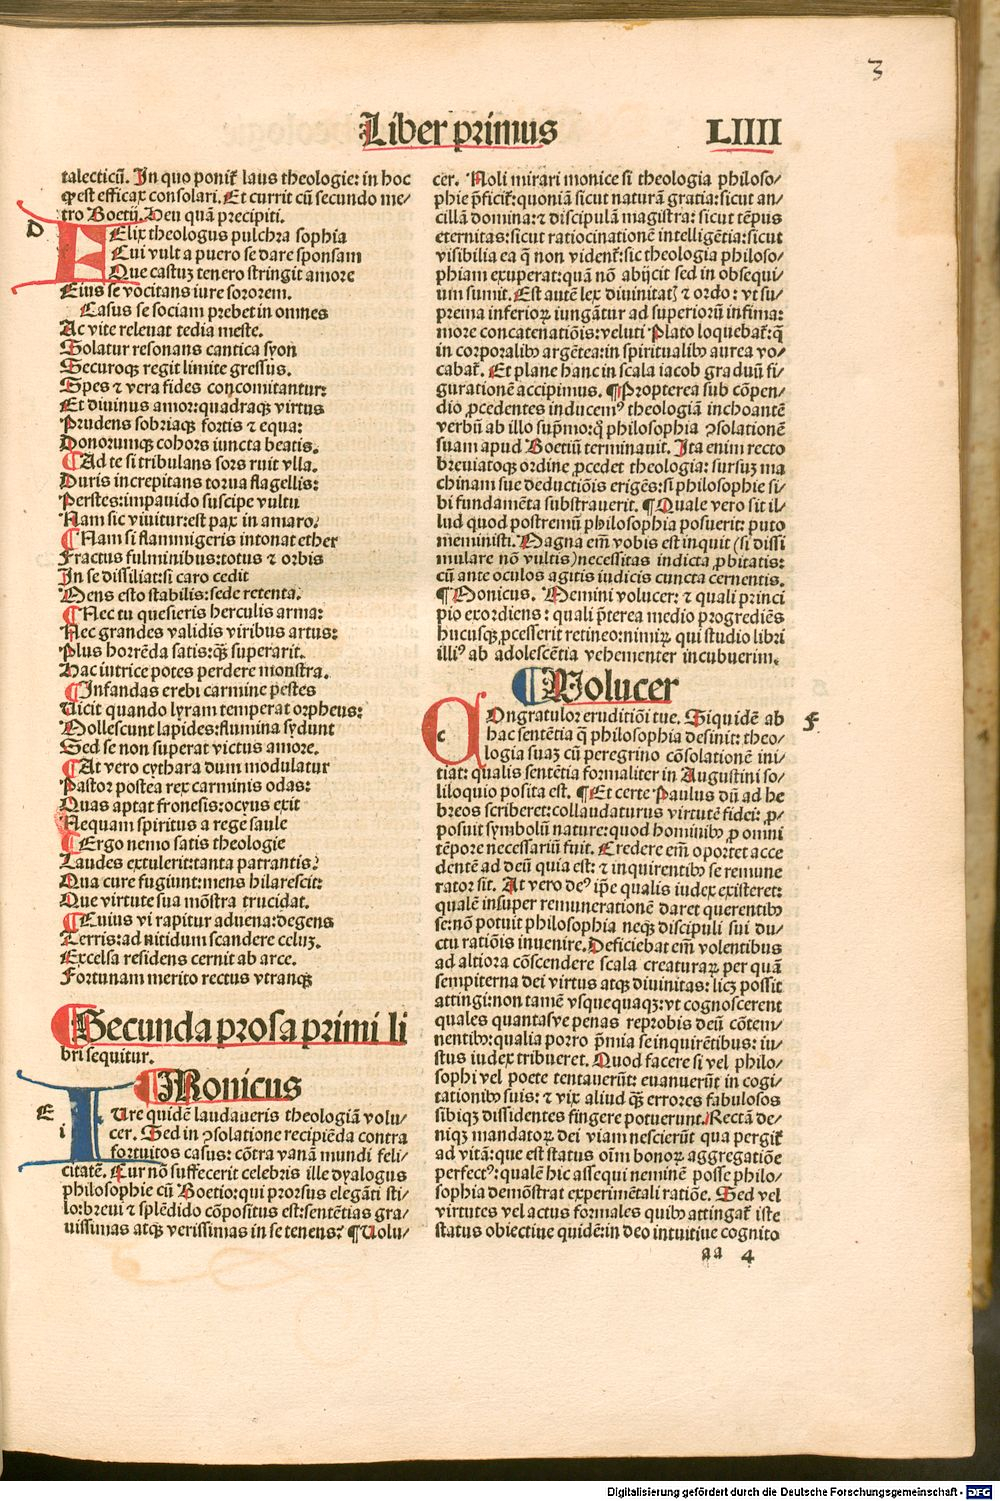 3
Liber primus
LIIII
talecticū. In quo ponit᷑ laus theologie: in hoc
ꝙ est efficax consolari. Et currit cū secundo me-
tro Boetij. Heu quā precipiti.
D
FElix theologus pulchra sophia
Cui vult a puero se dare sponsam
Que castuꝫ tenero stringit amore
Eius se vocitans iure sororem.
Casus se sociam prebet in omnes
Ac vite releuat tedia meste.
Solatur resonans cantica syon
Securoqꝫ regit limite gressus.
Spes ⁊ vera fides concomitantur:
Et diuinus amor: quadraqꝫ virtus
Prudens sobriaqꝫ fortis ⁊ equa:
Donorumqꝫ cohors iuncta beatis.
¶ Ad te si tribulans sors ruit vlla.
Duris increpitans torua flagellis:
Perstes: impauido suscipe vultu
Nam sic viuitur: est pax in amaro.
¶ Nam si flammigeris intonat ether
Fractus fulminibus: totus ⁊ orbis
In se dissiliat: si caro cedit
Mens esto stabilis: sede retenta.
¶ Nec tu quesieris herculis arma:
Nec grandes validis viribus artus:
Plus horrēda satis: qꝫ̄ superarit.
Hac iutrice potes perdere monstra.
¶ Infandas erebi carmine pestes
Vicit quando lyram temperat orpheus:
Mollescunt lapides: flumina sydunt
Sed se non superat victus amore.
¶ At vero cythara dum modulatur
Pastor postea rex carminis odas:
Quas aptat fronesis: ocyus exit
Nequam spiritus a rege saule
¶ Ergo nemo satis theologie
Laudes extulerit: tanta patrantis?
Qua cure fugiunt: mens hilarescit:
Que virtute sua mōstra trucidat.
¶ Cuius vi rapitur aduena: degens
Terris: ad nitidum scandere celuꝫ.
Excelsa residens cernit ab arce.
Fortunam merito rectus vtranqꝫ
¶ Secunda prosa primi li
bri sequitur.
¶ Monicus
E
i
IUre quidē laudaueris theologiā volu-
cer. Sed in ꝯsolatione recipiēda contra
fortuitos casus: cōtra vanā mundi feli-
citatē. Cur nō suffecerit celebris ille dyalogus
philosophie cū Boetio: qui prorsus elegāti sti-
lo: breui ⁊ splēdido cōpositus est: sentētias gra-
uissimas atqꝫ verissimas in se tenens? ¶ Uolu-
cer. Noli mirari monice si theologia philoso-
phie p̄ficit᷑: quoniā sicut naturā gratia: sicut an-
cillā domina: ⁊ discipulā magistra: sicut tēpus
eternitas: sicut ratiocinationē intelligētia: sicut
visibilia ea q̄ non vident᷑: sic theologia philoso-
phiam exuperat: quā nō abijcit sed in obsequi
um sumit. Est autē lex diuinitatꝭ ⁊ ordo: vt su-
prema inferioꝝ iungātur ad superiorū infima:
more concatenatiōis: veluti Plato loquebat᷑: q̄
in corporalibꝰ argētea: in spiritualibꝰ aurea vo-
cabat᷑. Et plane hanc in scala iacob graduū fi-
gurationē accipimus. ¶ Propterea sub cōpen-
dio ꝓcedentes inducemꝰ theologiā inchoantē
verbū ab illo supͫmo: q̊ philosophia ꝯsolationē
suam apud Boetiū terminauit. Ita enim recto
breuiatoqꝫ ordine ꝓcedet theologia: sursuꝫ ma
chinam sue deductiōis erigēs: si philosophie si-
bi fundamēta substrauerit. ¶ Quale vero sit il-
lud quod postremū philosophia posuerit: puto
meministi. Magna em̄ vobis est inquit (si dissi
mulare nō vultis) necessitas indicta ꝓbitatis:
cū ante oculos agitis iudicis cuncta cernentis.
¶ Monicus. Memini volucer: ⁊ quali princi
pio exordiens: quali p̄terea medio progrediēs
hucusqꝫ ꝓcesserit retineo: nimiꝝ qui studio libri
illiꝰ ab adolescētia vehementer incubuerim.
¶ Volucer
F
c
COngratulor eruditiōi tue. Siquidē ab
hac sentētia q̄ philosophia desinit: theo-
logia suaꝫ cū peregrino cōsolationē ini-
tiat: qualis sentētia formaliter in Augustini so-
liloquio posita est. ¶ Et certe Paulus dū ad he
breos scriberet: collaudaturus virtutē fidei: ꝓ-
posuit symbolū nature: quod hominibꝰ ꝓ omni
tēpore necessariū fuit. Credere em̄ oportet acce
dentē ad deū quia est: ⁊ inquirentibꝰ se remune
rator sit. At vero deꝰ ip̄e qualis iudex existeret:
qualē insuper remunerationē daret querentibꝰ
se: nō potuit philosophia neqꝫ discipuli sui du-
ctu ratiōis inuenire. Deficiebat em̄ volentibus
ad altiora cōscendere scala creaturaꝝ per quā
sempiterna dei virtus atqꝫ diuinitas: licꝫ possit
attingi: non tamē vsquequaqꝫ: vt cognoscerent
quales quantasve penas reprobis deū cōtem-
nentibꝰ: qualia porro p̄mia se inquirētibus: iu-
stus iudex tribueret. Quod facere si vel philo-
sophi vel poete tentauerūt: euanuerūt in cogi-
tationibꝰ suis: ⁊ vix aliud qꝫ̄ errores fabulosos
sibiqꝫ dissidentes fingere potuerunt. Rectā de-
niqꝫ mandatoꝝ dei viam nescierūt qua pergit᷑
ad vitā: que est status oīm bonoꝝ aggregatiōe
perfectꝰ: qualē hic assequi neminē posse philo-
sophia demōstrat experimētali ratiōe. Sed vel
virtutes vel actus formales quibꝰ attingat᷑ iste
status obiectiue quidē: in deo intuitiue cognito
aa 4
Digitalisierung gefördert durch die Deutsche Forschungsgemeinschaft - DFG